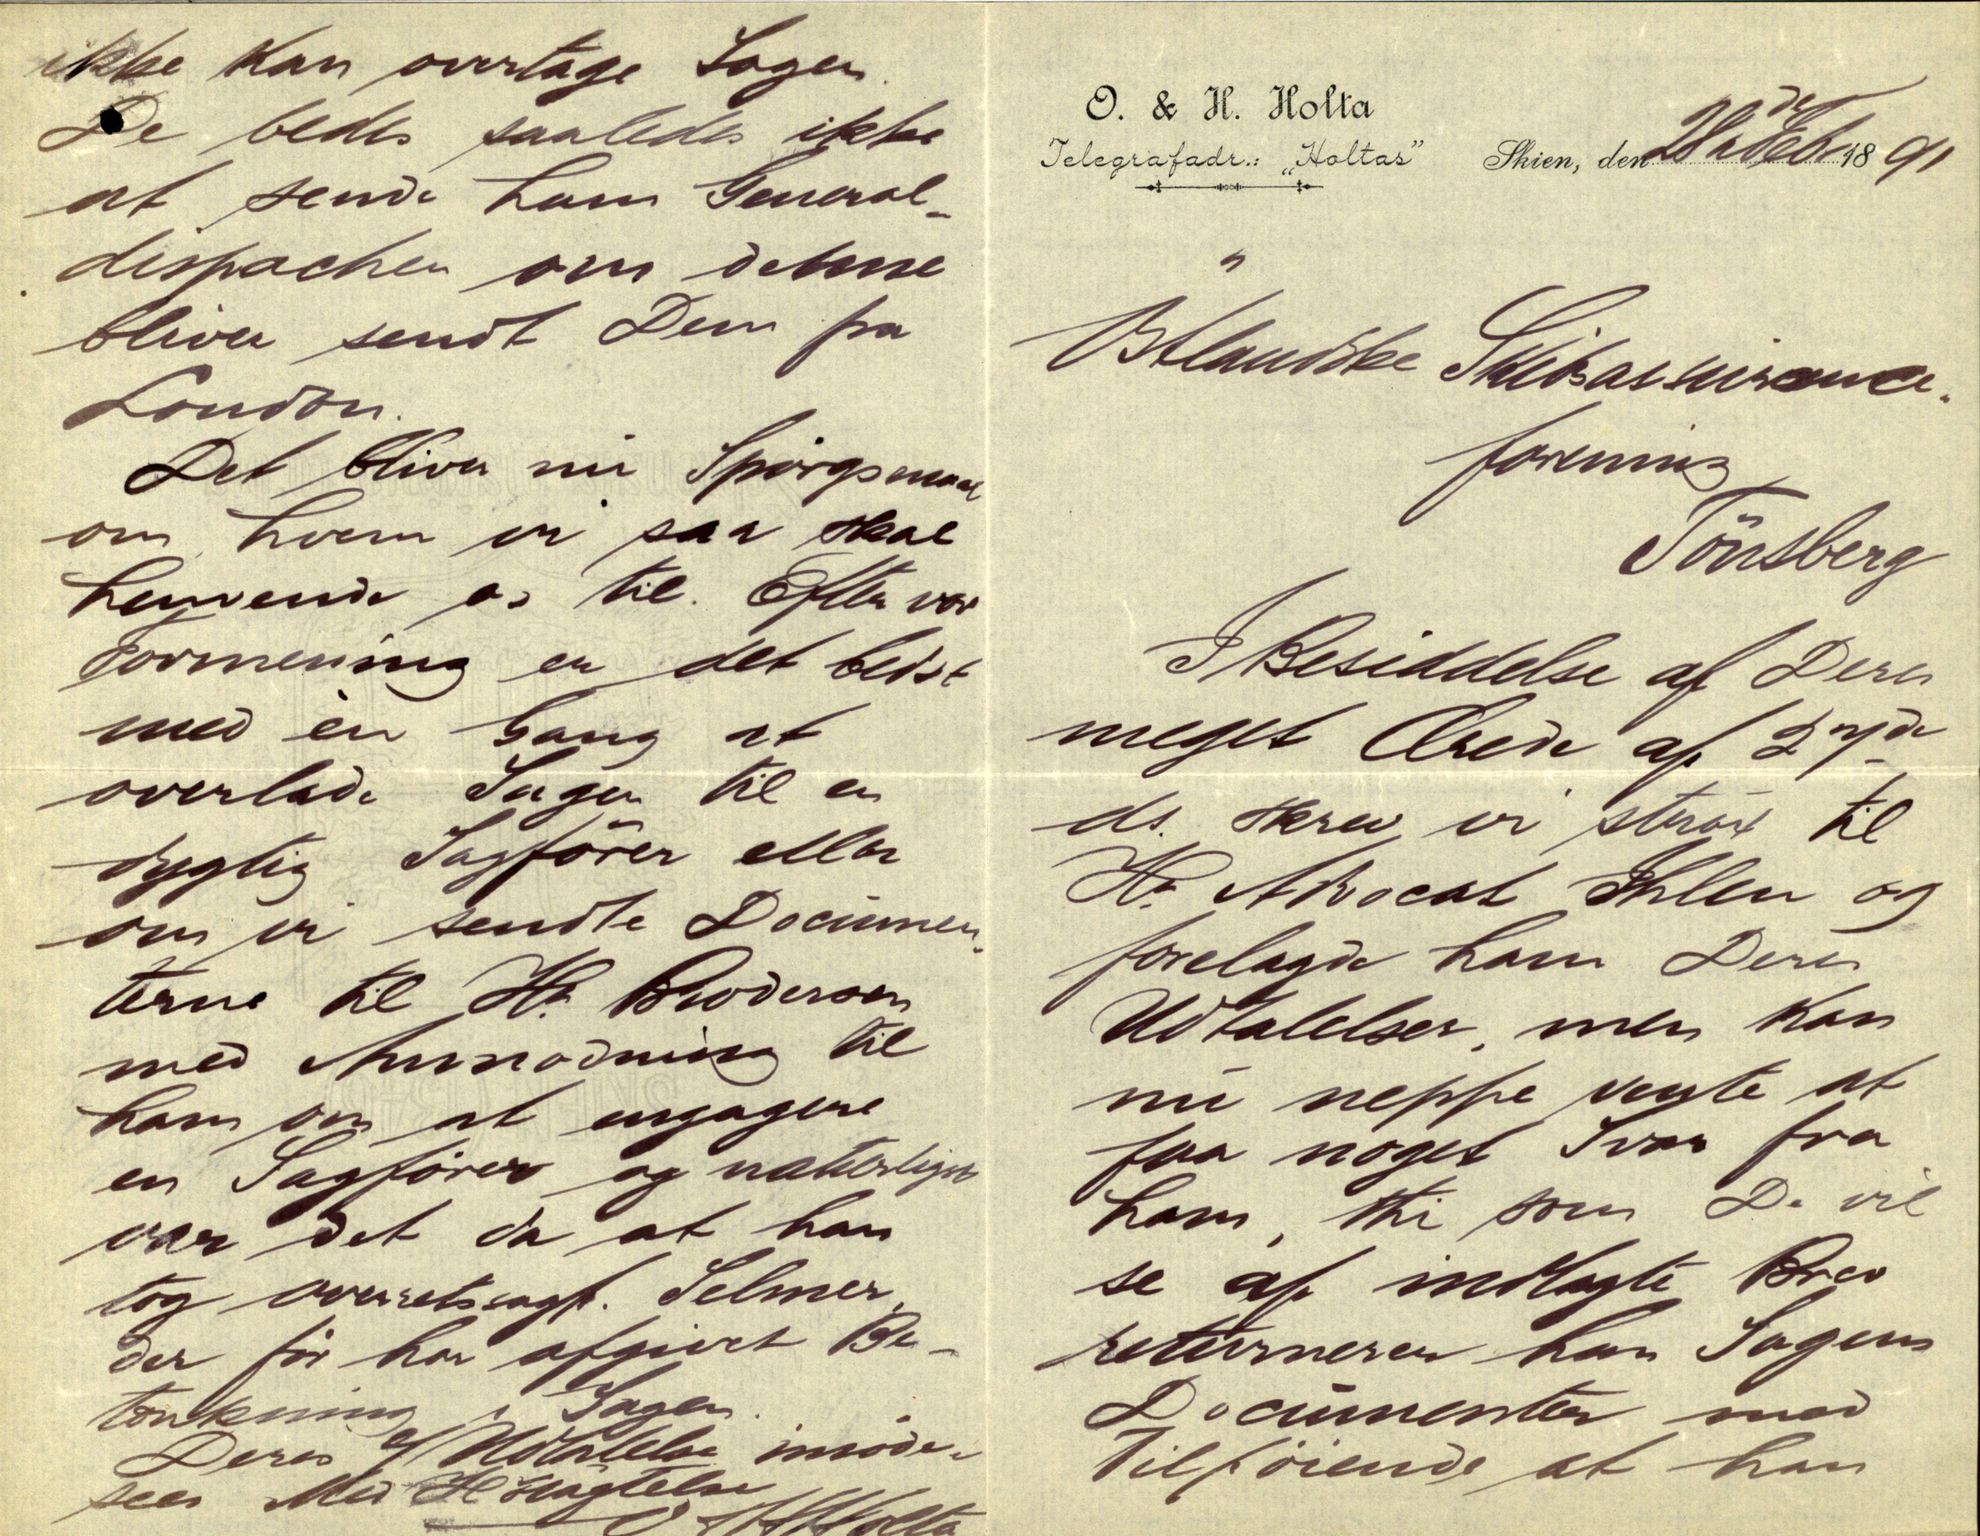 O. & H. Holta
Telegrafadr.: „Holtas”
Skien, den 28de Feb 1891
Östlandske Skibsassurance-
forening
Tönsberg
I Besiddelse af Deres
meget Ærede af 27de
ds. skrev vi strax til
Hr. Advocat Ihlen og
forelagde ham Deres
Udtalelser, men kan
nu neppe vente at
faa noget Svar fra
ham, thi som De vil
se af indlagte Brev
returnerer han Sagens
Documenter med
Tilföiende at han
ikke kan overtage Sagen.
De bedes saaledes ikke
at sende ham General-
dispachen om denne
bliver sendt Dem fra
London.
Det bliver nu Spörgsmaal
om hvem vi saa skal
henvende os til. Efter vor
Formening er det bedst
med én Gang at
overlade Sagen til en
dygtig Sagförer eller
om vi sendte Documen-
terne til Hr. Brodersen
med Anmodning til
ham om at engagere
en Sagförer og naturligst
var det da at han
tog Overretssagf. Selmer,
der för har afgivet Be-
tænkning i Sagen.
Deres Udtalelse imöde-
sees Med Höiagtelse
O & H Holta